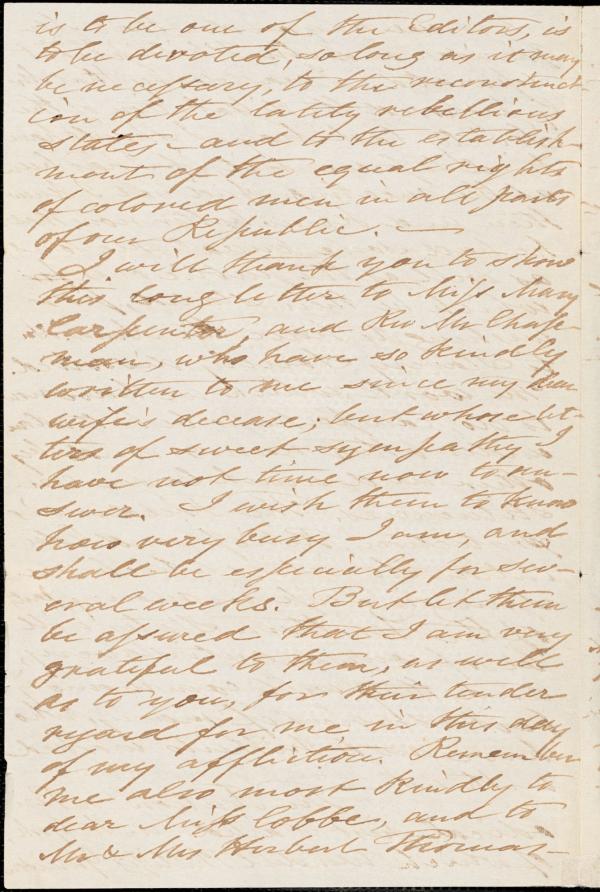 is to be one of the Editors, is
to be devoted, so long as it may
be necessary, to the reconstruct-
ion of the lately rebellious
states - and to the establish-
ment of the equal rights
of colored men in all parts
of our Republic. —
I will thank you to show
this long letter to Miss Mary
Carpenter, and Rev Mr Chap-
man, who have so kindly
written to me since my dear
wife's decease; but whose let-
ters of sweet sympathy I
have not time now to an-
swer. I wish them to know
how very busy I am, and
shall be especially for sev-
eral weeks. But let them
be assured that I am very
grateful to them, as well
as to you, for their tender
regard for me in this day
of my affliction. Remember
me also most kindly to
dear Miss Cobbe, and to
Mr & Mrs Herbert Thomas -